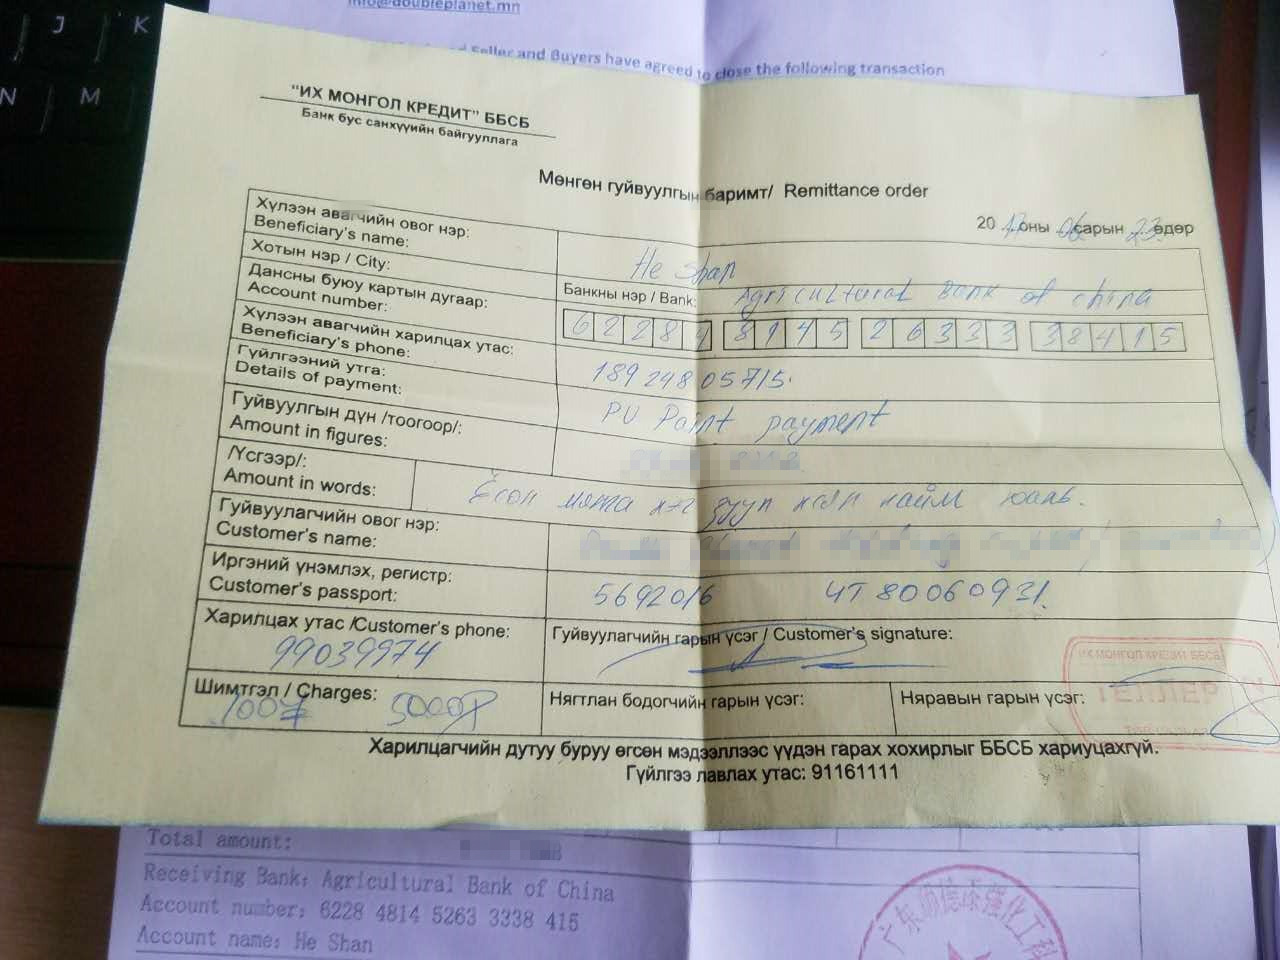 J K
N M
info@doubleplanet.mn
Seller and Buyers have agreed to close the following transaction
"ИХ МОНГОЛ КРЕДИТ" ББСБ
Банк бус санхүүийн байгууллага
Мөнгөн гуйвуулгын баримт/ Remittance order
20 17 оны 06 сарын 23 өдөр
Хүлээн авагчийн овог нэр:
Beneficiary's name:
He Shan
Хотын нэр / City:
Банкны нэр / Bank: Agricultural Bank of China
Дансны буюу картын дугаар:
Account number:
6 2 2 8 4 8 1 4 5 2 6 3 3 3 3 8 4 1 5
Хүлээн авагчийн харилцах утас:
Beneficiary's phone:
18924805715.
Гүйлгээний утга:
Details of payment:
PU Paint payment
Гуйвуулгын дүн /тоогоор/:
Amount in figures:
/Үсгээр/:
Amount in words:
Есөн мянга нэг зуун наян найм юань.
Гуйвуулагчийн овог нэр:
Customer's name:
Иргэний үнэмлэх, регистр:
Customer's passport:
5692016 ЧТ80060931.
Харилцах утас /Customer's phone:
99039974
Гуйвуулагчийн гарын үсэг / Customer's signature:
Шимтгэл / Charges:
100¥ 5000₮
Нягтлан бодогчийн гарын үсэг:
Няравын гарын үсэг:
ИХ МОНГОЛ КРЕДИТ ББСБ
ТЕЛЛЕР
Харилцагчийн дутуу буруу өгсөн мэдээллээс үүдэн гарах хохирлыг ББСБ хариуцахгүй.
Гүйлгээ лавлах утас: 91161111
Total amount:
Receiving Bank: Agricultural Bank of China
Account number: 6228 4814 5263 3338 415
Account name: He Shan